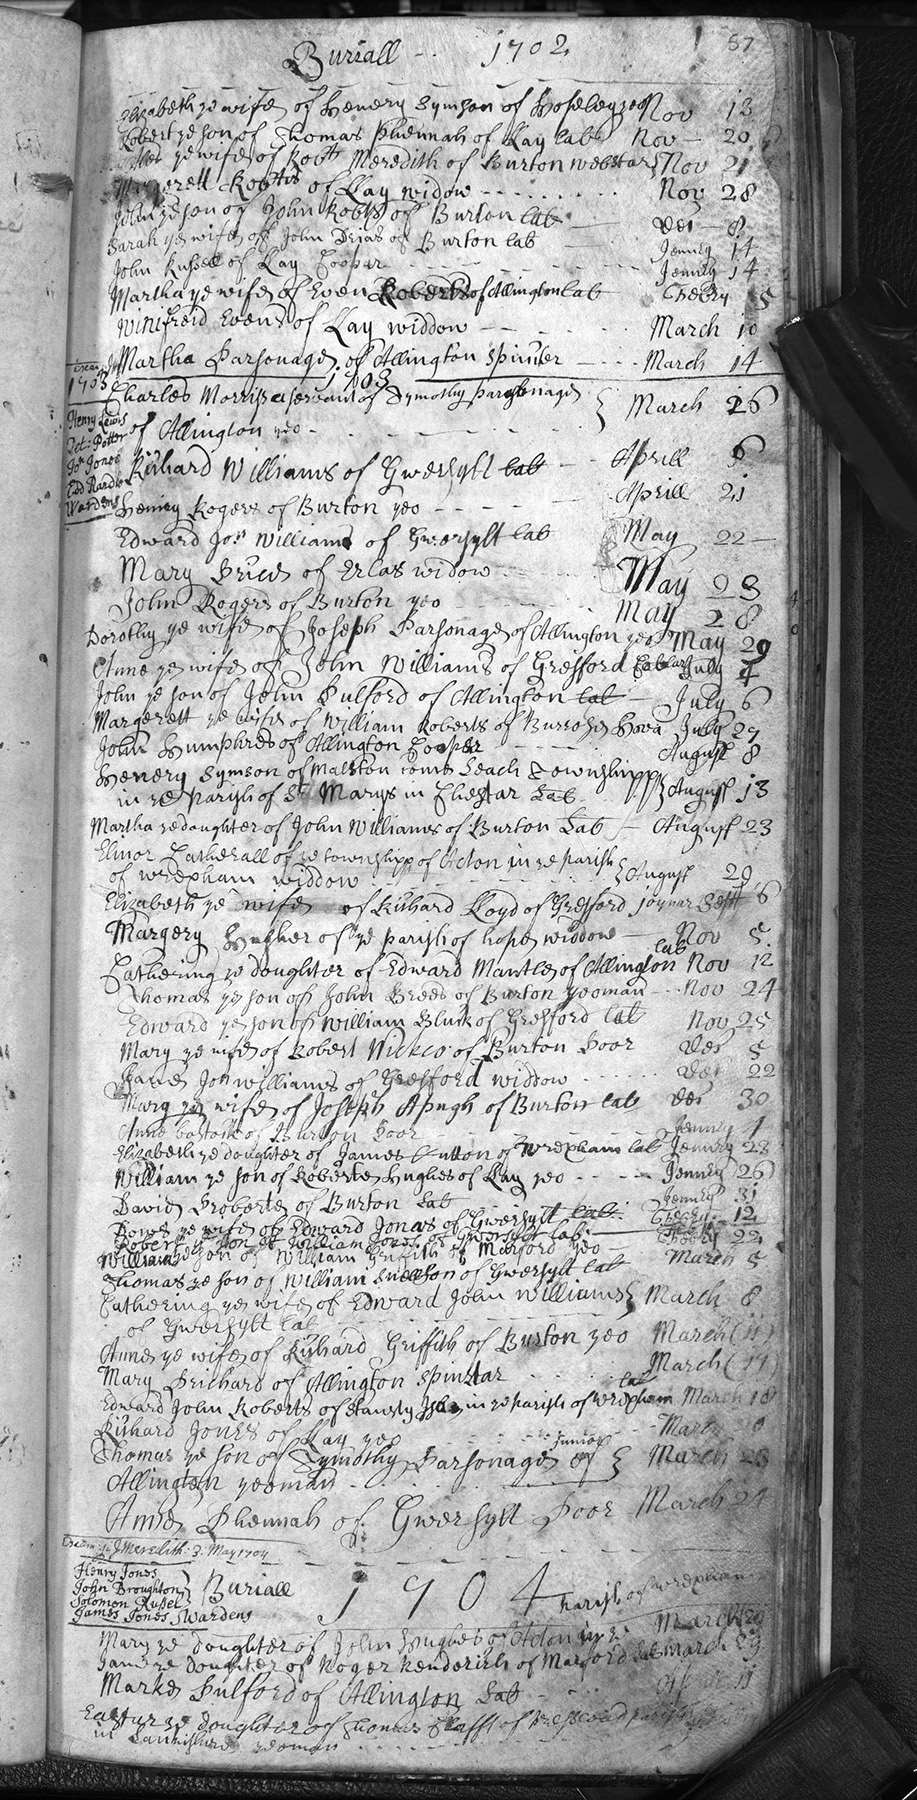 Buriall 1702
57
Elizabeth ye wife of Henery Symson of Hoseley Nov 13
Robert ye son of Thomas Phennah of Lay lab Nov 20
ye wife of Robt Meredith of Burton webstar Nov 21
Robts of Llay widow Nov 28
John ye son of John Robts of Burton lab Der 8
Sarah ye wife of John of Burton lab Jenney 14
John Russell of Llay Cooper Jenney 14
Martha ye wife of Even Roberts of Allington lab Febery 5
Winifreid Evens of Lay widdow March 10
Martha Parsonage of Allington spinster March 14
1703
1703
Charles Morris a servant of Tymothy Parsonage
of Allington yeo March 26
Henry Lewis
Pet: Potter
Jon Jones
Edd Randle
Wardens
Richard Williams of Gwersylt lab Aprill 6
Henery Rogers of Burton yeo Aprill 21
Edward Jon Williams of Gwersylt lab May 22
Mary Price of Erlas widow May 23
John Rogers of Burton yeo May 28
Dorothy ye wife of Joseph Parsonage of Allington yeo May 29
Anne ye wife of John Williams of Gresford July 4
John ye son of John Pulford of Allington lab July 6
Margerett ye wife of William Roberts of July 29
John Humphres of Allington Cooper August 8
Henery Symson of Township
in ye Parish of St Marys in Chestar Lab August 13
Martha ye daughter of John Williams of Burton Lab August 23
Elinor Catherall of ye townshipp of Acton in ye parish
of wrexham widdow August 29
Elizabeth ye wife of Richard Lloyd of Gresford Joynar Sept 6
Margery Hugher of ye parish of hope widdow Nov 5
Cathering ye doughter of Edward Mantle of Allington lab Nov 12
Thomas ye son of John Brees of Burton yeoman Nov 24
Edward ye son of William Bluck of Gresford lab Nov 25
Mary ye wife of Robert of Burton Poor Der 5
Jon Williams of Gresford widdow Der 22
Mary ye wife of Joseph Apugh of Burton lab Der 30
Anne bostock of Burton Poor Jenney 4
Elizabeth ye doughter of James Cutton of Wrexham lab Jenney 23
William ye son of Roberte Hughes of Llay yeo Jenney 26
David Proberte of Burton Lab Jenney 31
ye wife of Edward Jones of Gwersylt lab Febery 12
Robert ye son of William Jones of Gwersylt lab Febery 22
William ye son of William Griffith of Marford yeo March 5
Thomas ye son of William Snellson of Gwersylt lab
Cathering ye wife of Edward John Williams March 8
of Gwersylt lab
Anne ye wife of Richard Griffith of Burton yeo March 11
Mary Prichard of Allington spinstar March
Edward John Roberts of Stansty in ye parish of wrexham lab March 18
Richard Jones of Llay yeo March
Thomas ye son of Tymothy Parsonage Junior of March 23
Allington yeoman
Anne Phennah of Gwersylt Poor March 24
J Meredith: 3: May 1704
Henry Jones
John Broughton
Solomon Russel
James Jones Wardens
Buriall 1704
parish of wrexham
Mary ye Doughter of John Hughes of Acton in ye March
Jane ye Doughter of Roger Kenderick of Marford March 29
Marke Pulford of Allington Lab 11
ye doughter of Thomas of
in yeoman